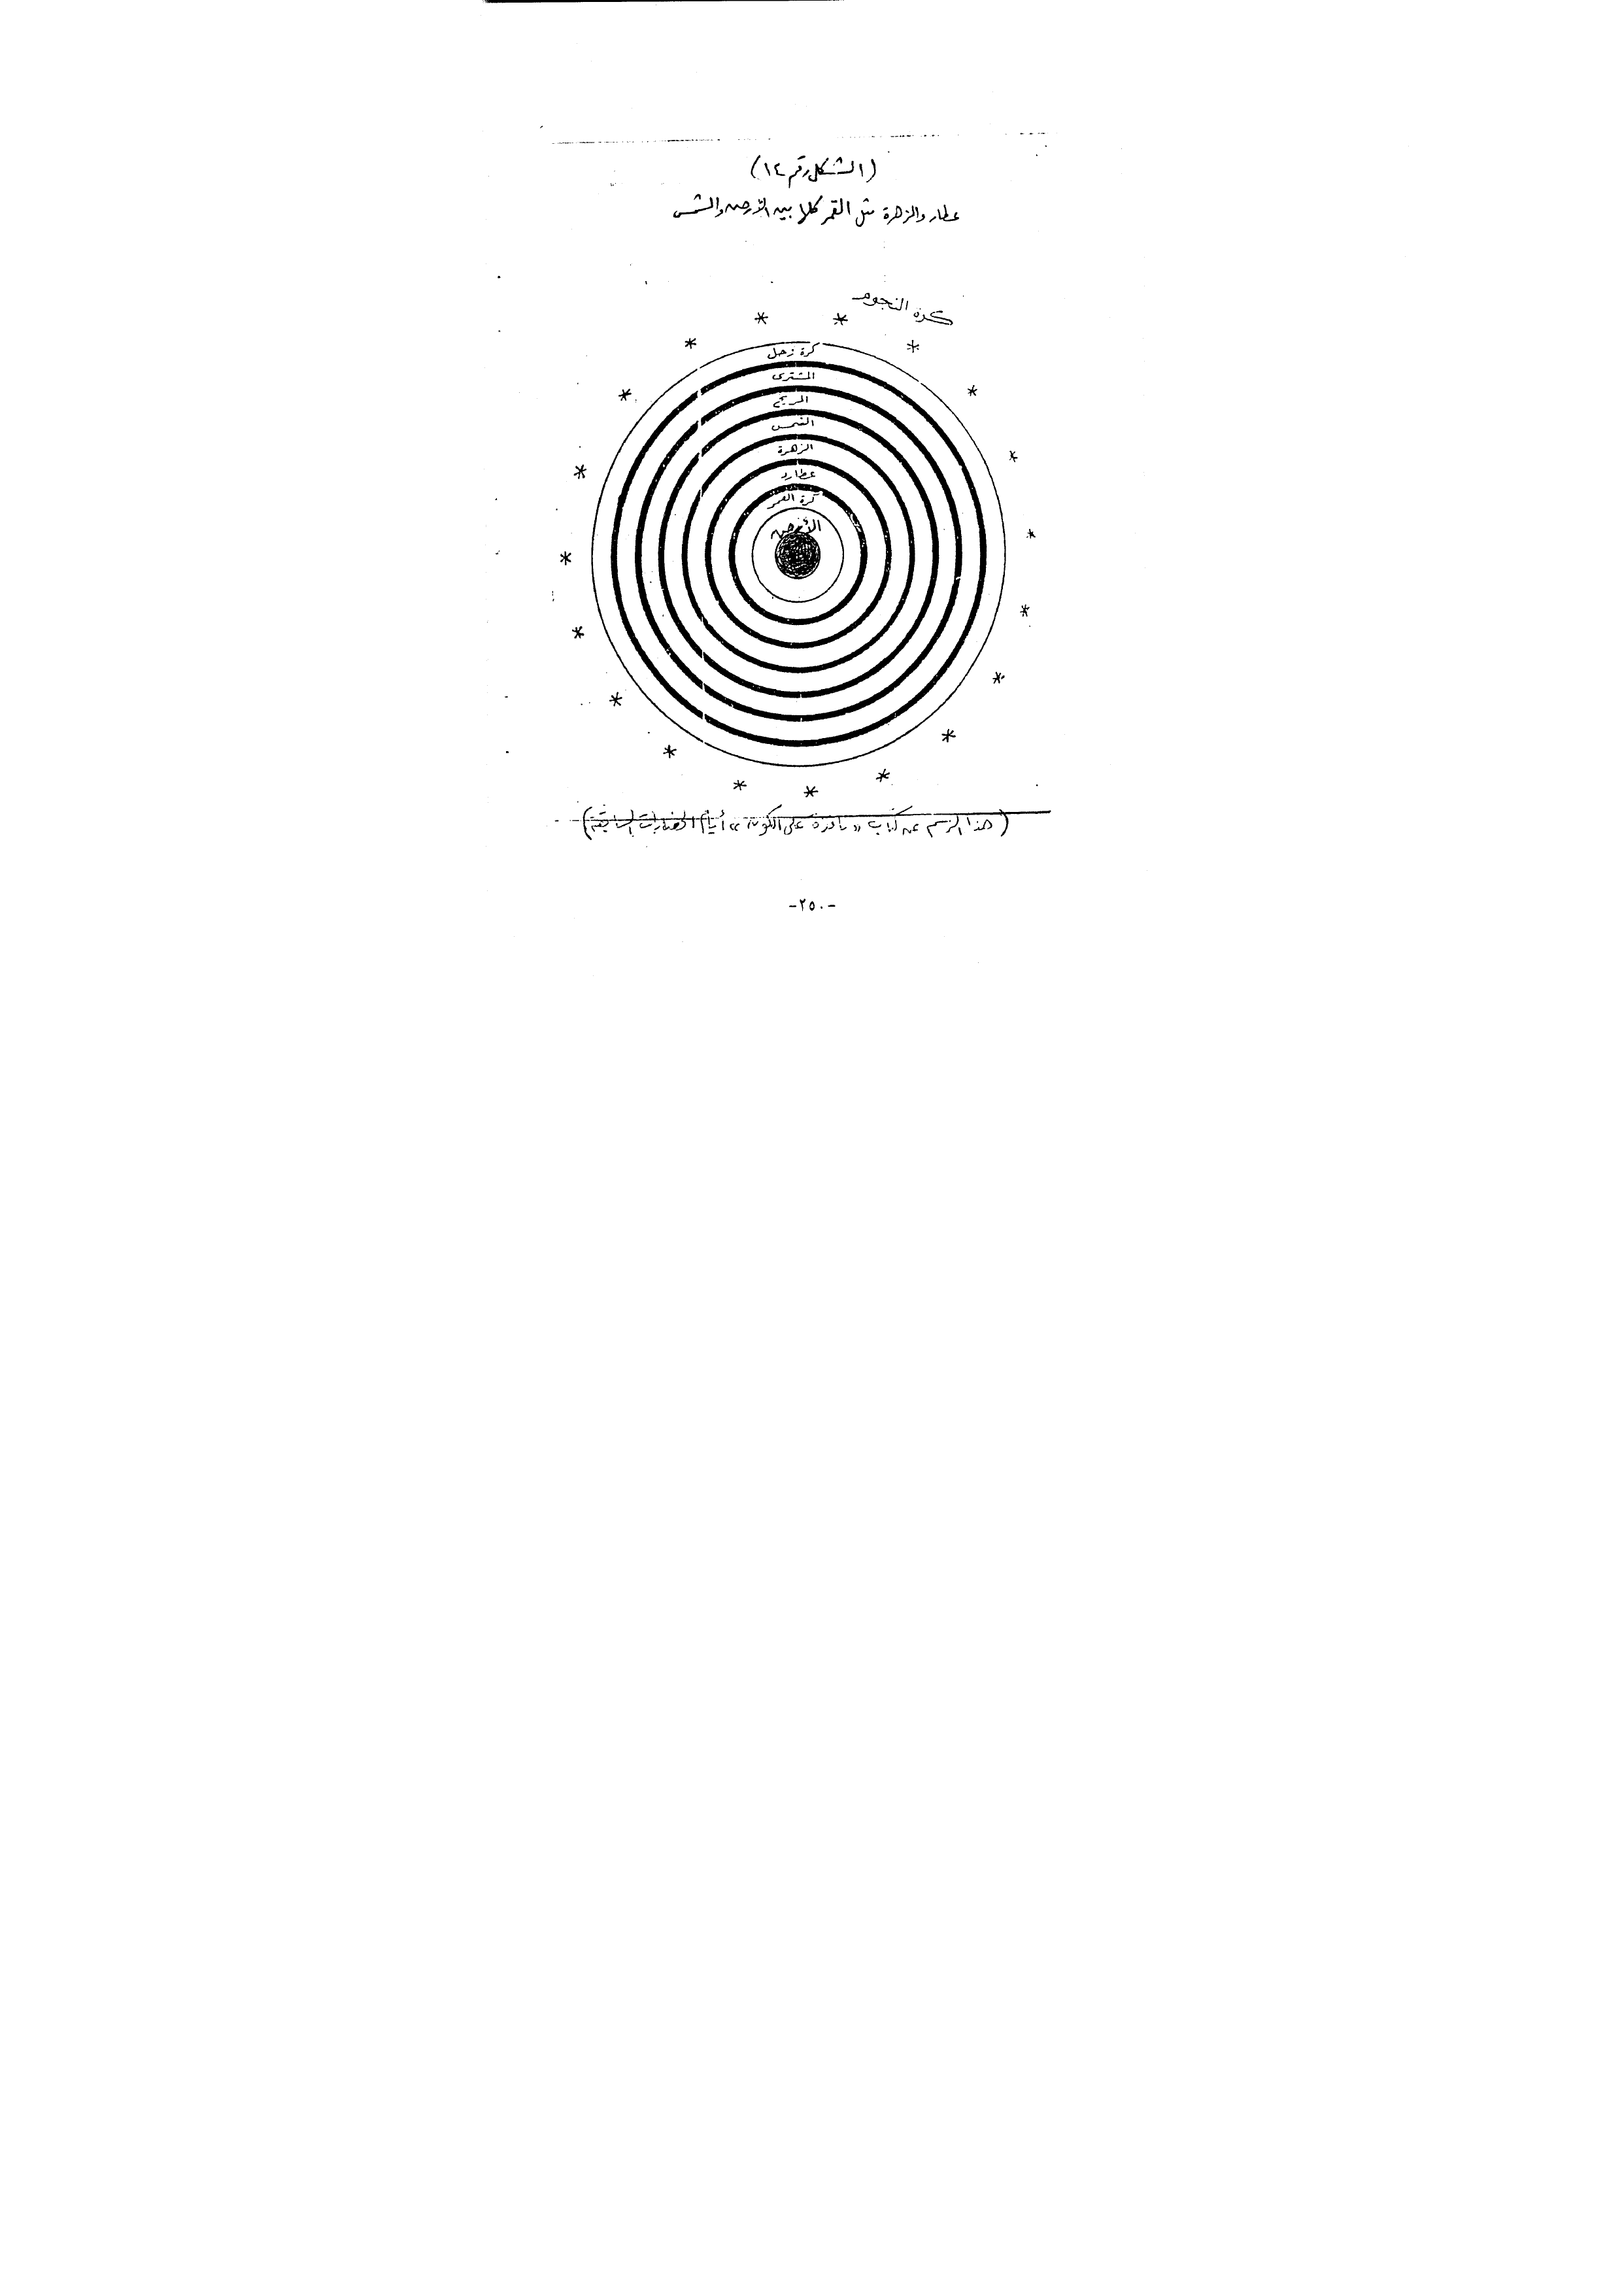 (الشكل رقم ١٤)
عطار والزهرة مثل القمر كلها بين الأرض والشمس
كرة النجوم
كرة زحل
المشترى
المريخ
الشمس
الزهرة
عطارد
كرة القمر
الأرض
(هذا الرسم عن كتاب « نافذة على الكون » أيام الحضارات السابقة)
-٢٥٠-